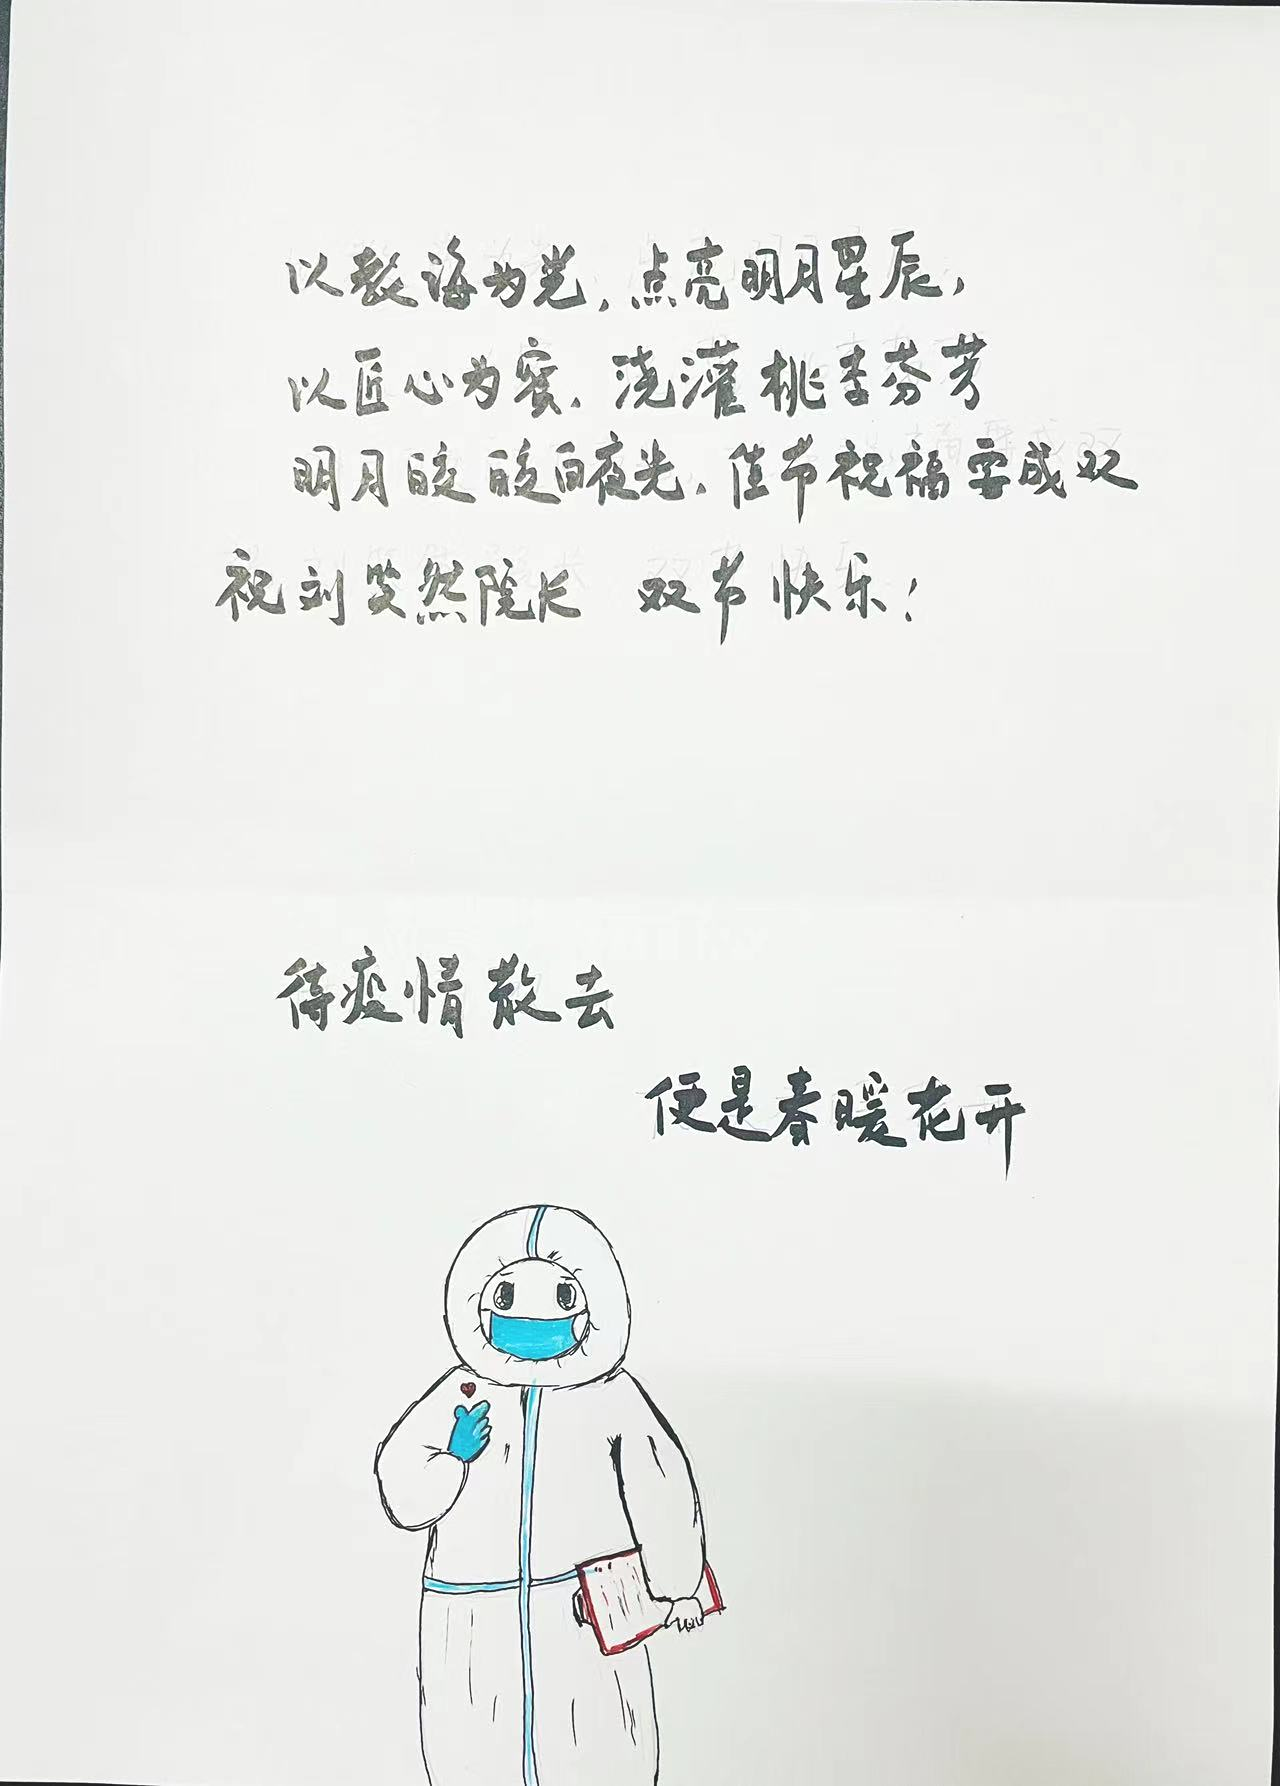 以教诲为光,点亮明月星辰,
以匠心为蜜.浇灌桃李芬芳
明月皎皎白夜光.佳节祝福要成双
祝刘笑然院长 双节快乐!
待疫情散去
便是春暖花开